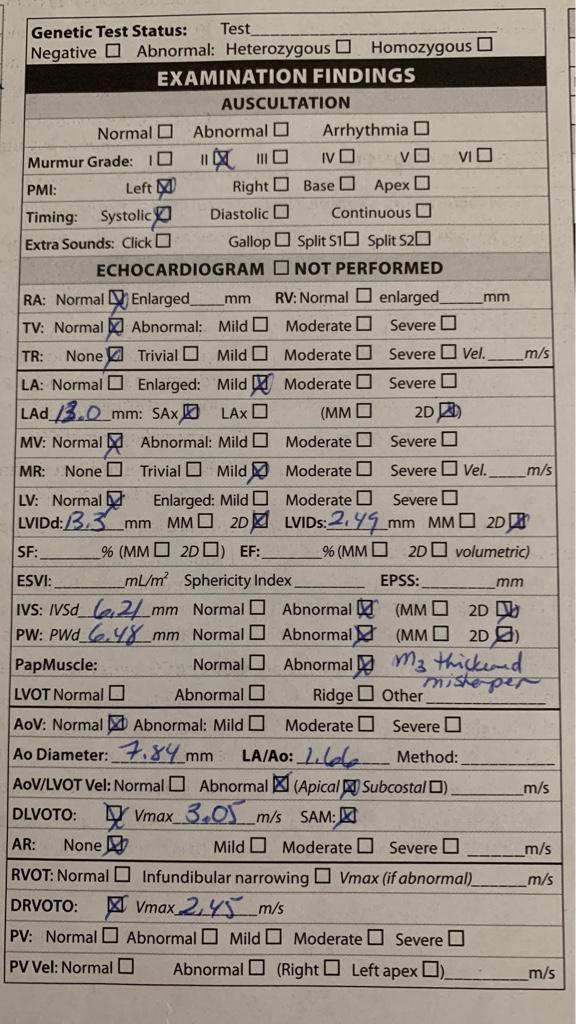 Genetic Test Status: Test____________
Negative ☐ Abnormal: Heterozygous ☐ Homozygous ☐
EXAMINATION FINDINGS
AUSCULTATION
Normal ☐ Abnormal ☐ Arrhythmia ☐
Murmur Grade: I ☐ II ☒ III ☐ IV ☐ V ☐ VI ☐
PMI: Left ☒ Right ☐ Base ☐ Apex ☐
Timing: Systolic ☒ Diastolic ☐ Continuous ☐
Extra Sounds: Click ☐ Gallop ☐ Split S1 ☐ Split S2 ☐
ECHOCARDIOGRAM ☐ NOT PERFORMED
RA: Normal ☒ Enlarged____mm RV: Normal ☐ enlarged_____mm
TV: Normal ☒ Abnormal: Mild ☐ Moderate ☐ Severe ☐
TR: None ☒ Trivial ☐ Mild ☐ Moderate ☐ Severe ☐ Vel.____m/s
LA: Normal ☐ Enlarged: Mild ☒ Moderate ☐ Severe ☐
LAd 13.0 mm: SAx ☒ LAx ☐ (MM ☐ 2D ☒)
MV: Normal ☒ Abnormal: Mild ☐ Moderate ☐ Severe ☐
MR: None ☐ Trivial ☐ Mild ☒ Moderate ☐ Severe ☐ Vel.____m/s
LV: Normal ☒ Enlarged: Mild ☐ Moderate ☐ Severe ☐
LVIDd: 13.3 mm MM ☐ 2D ☒ LVIDs: 2.49 mm MM ☐ 2D ☒
SF:______% (MM ☐ 2D ☐) EF:______% (MM ☐ 2D ☐ volumetric)
ESVI:_______mL/m² Sphericity Index________ EPSS:________mm
IVS: IVSd 6.21 mm Normal ☐ Abnormal ☒ (MM ☐ 2D ☒)
PW: PWd 6.48 mm Normal ☐ Abnormal ☒ (MM ☐ 2D ☒)
PapMuscle: Normal ☐ Abnormal ☒ thickened
LVOT Normal ☐ Abnormal ☐ Ridge ☐ Other misshapen
AoV: Normal ☒ Abnormal: Mild ☐ Moderate ☐ Severe ☐
Ao Diameter: 7.84 mm LA/Ao: 1.66 Method:__________
AoV/LVOT Vel: Normal ☐ Abnormal ☒ (Apical ☒ Subcostal ☐)________m/s
DLVOTO: ☒ Vmax 3.05 m/s SAM: ☒
AR: None ☒ Mild ☐ Moderate ☐ Severe ☐ ______m/s
RVOT: Normal ☐ Infundibular narrowing ☐ Vmax (if abnormal)______m/s
DRVOTO: ☒ Vmax 2.45 m/s
PV: Normal ☐ Abnormal ☐ Mild ☐ Moderate ☐ Severe ☐
PV Vel: Normal ☐ Abnormal ☐ (Right ☐ Left apex ☐)________m/s